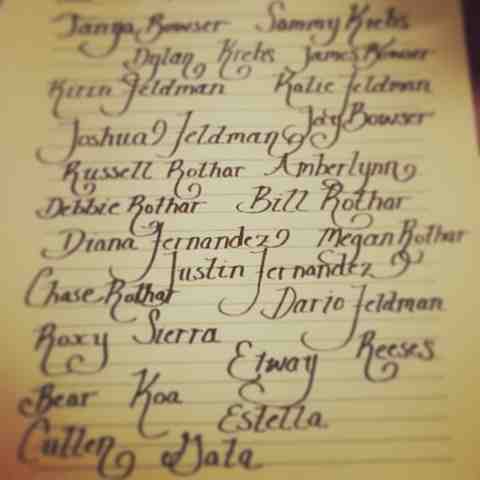 Tanya Bowser Sammy Krebs
Dylan Krebs James Bowser
Kirin Feldman Katie Feldman
Jay Bowser
Joshua Feldman
Russell Rothar Amberlynn
Debbie Rothar Bill Rothar
Diana Fernandez Megan Rothar
Justin Fernandez
Chase Rothar Dario Feldman
Roxy Sierra
Elway Reeses
Bear Koa
Estella
Cullen Gata